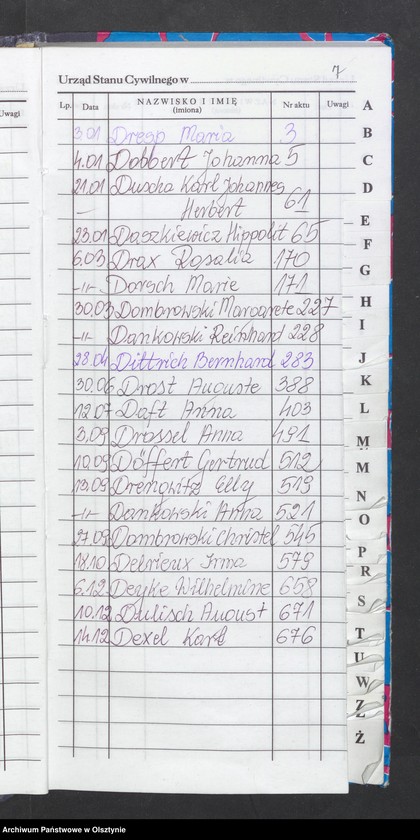 7
Urząd Stanu Cywilnego w
Lp. Data NAZWISKO I IMIĘ (imiona) Nr aktu Uwagi
Uwagi
3.01 Dresp Maria 3
4.01 Dobbert Johanna 5
21.01 Duscha Karl Johannes
Herbert 61
23.01 Daszkiewicz Hippolit 65
6.03 Drax Rosalia 170
-11- Dorsch Marie 171
30.03 Dombrowski Margarete 227
-11- Dankowski Reinhard 228
28.04 Dittrich Bernhard 283
30.06 Drost Auguste 388
12.07 Daft Anna 403
3.09 Drossel Anna 491
10.09 Döffert Gertrud 512
13.09 Drenowitz Elly 519
-11- Dankowski Anna 521
27.09 Dombrowski Christel 545
18.10 Delrieux Irma 579
6.12 Deyke Wilhelmine 658
10.12 Dulisch August 671
14.12 Dexel Karl 676
A
B
C
D
E
F
G
H
I
J
K
L
Ł
M
N
O
P
R
S
T
U
W
Z
Ż
Archiwum Państwowe w Olsztynie